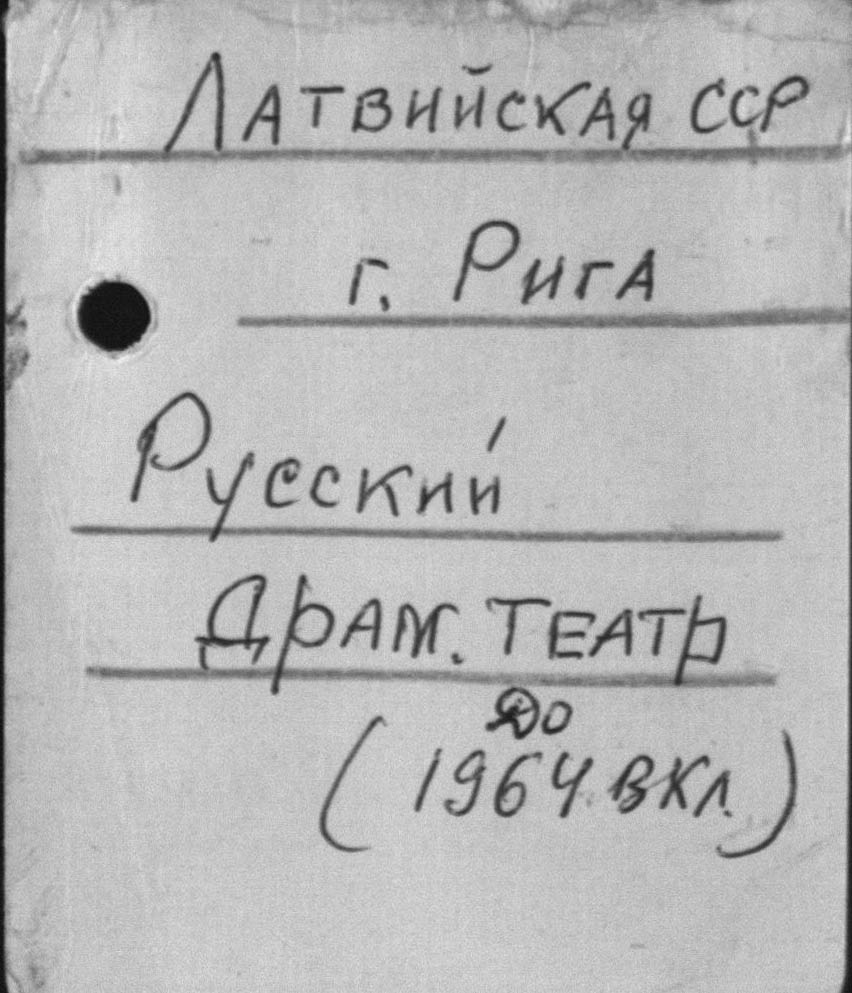 Латвийская ССР
г. Рига
Русский
Драм. театр
до
(1964 вкл.)